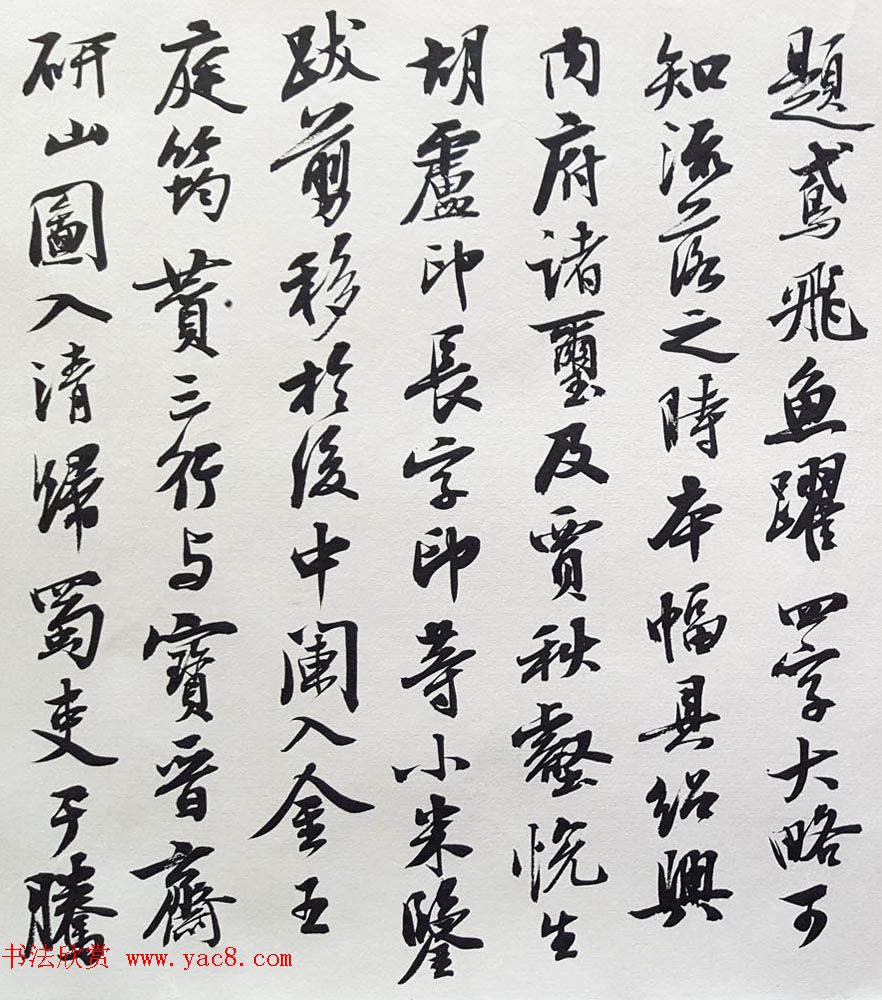 題鳶飛魚躍四字大略可
知流落之時本幅具紹興
内府諸璽及賈秋壑悅生
胡盧印長字印等小米鑒
跋剪移於後中闌入金王
庭筠贊三行与寶晉齋
研山圖入清歸蜀吏于騰
书法欣赏 www.yac8.com